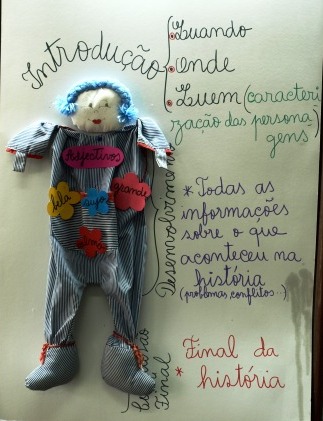 Introdução
Quando
Onde
Quem (caracteri
zação das persona
gens)
Adjetivos
bela
grande
Desenvolvimento
* Todas as
informações
sobre o que
aconteceu na
história
(problemas, conflitos...)
Final
* Final da
história